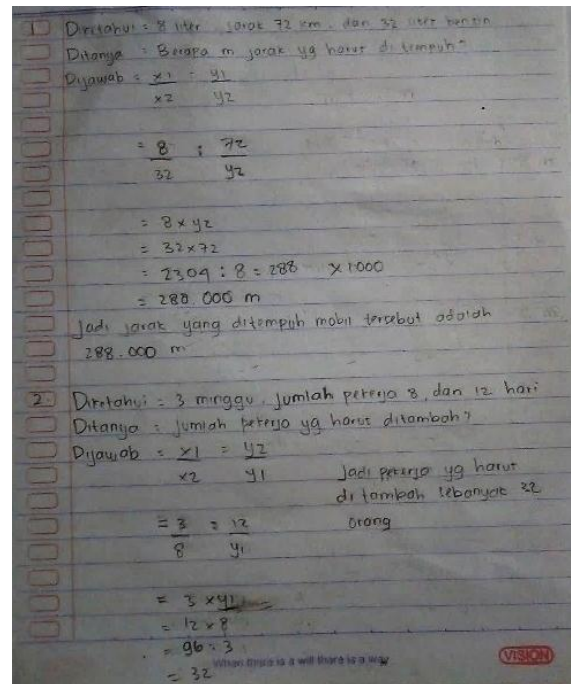 1 Diketahui = 8 liter jarak 72 km, dan 32 liter bensin
Ditanya : Berapa m jarak yg harus di tempuh?
Dijawab = x1 = y1
x2 y2
= 8 : 72
32 y2
= 8 x y2
= 32 x 72
= 2304 : 8 = 288 x 1000
= 288 000 m
Jadi jarak yang ditempuh mobil tersebut adalah
288.000 m
2. Diketahui = 3 minggu, jumlah pekerja 8, dan 12 hari
Ditanya : jumlah pekerja yg harus ditambah?
Dijawab = x1 = y2
x2 y1
Jadi pekerja yg harus
di tambah sebanyak 32
orang
= 3 = 12
8 y1
= 3 x y1
= 12 x 8
= 96 : 3
= 32
When there is a will there is a way
VISION